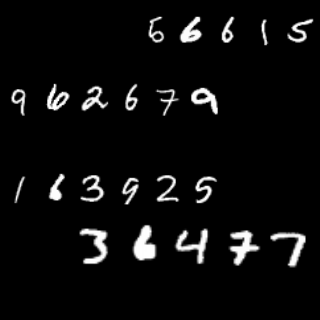 56615
962679
163925
36477